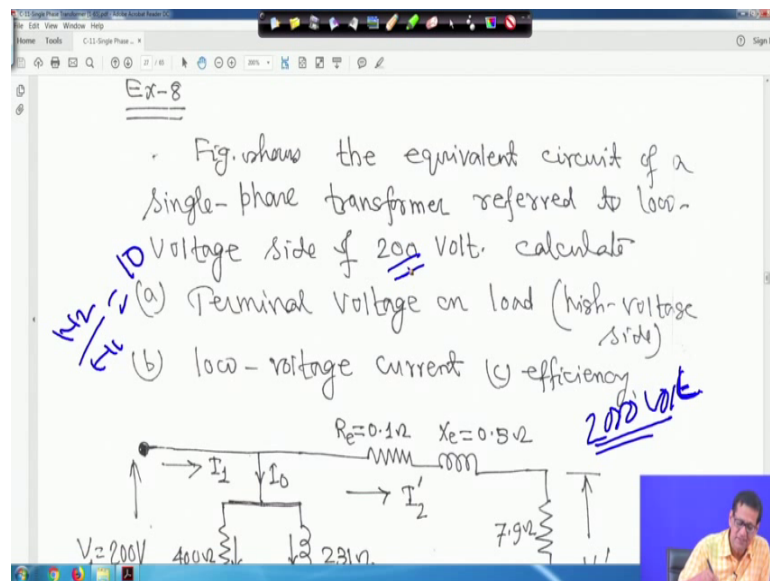 C-11-Single Phase Transformer [5-8].pdf - Adobe Acrobat Reader DC
File Edit View Window Help
Home Tools C-11-Single Phase ... × Sign
Ex-8
Fig. shows the equivalent circuit of a
single-phase transformer referred to low-
voltage side of 200 volt. calculate
(a) Terminal voltage on load (high-voltage
side)
(b) low-voltage current (c) efficiency
N2/N1 = 10
2000 volt.
Re=0.1Ω Xe=0.5Ω
I1 I0 I2'
V1=200V 400Ω 231Ω 7.9Ω